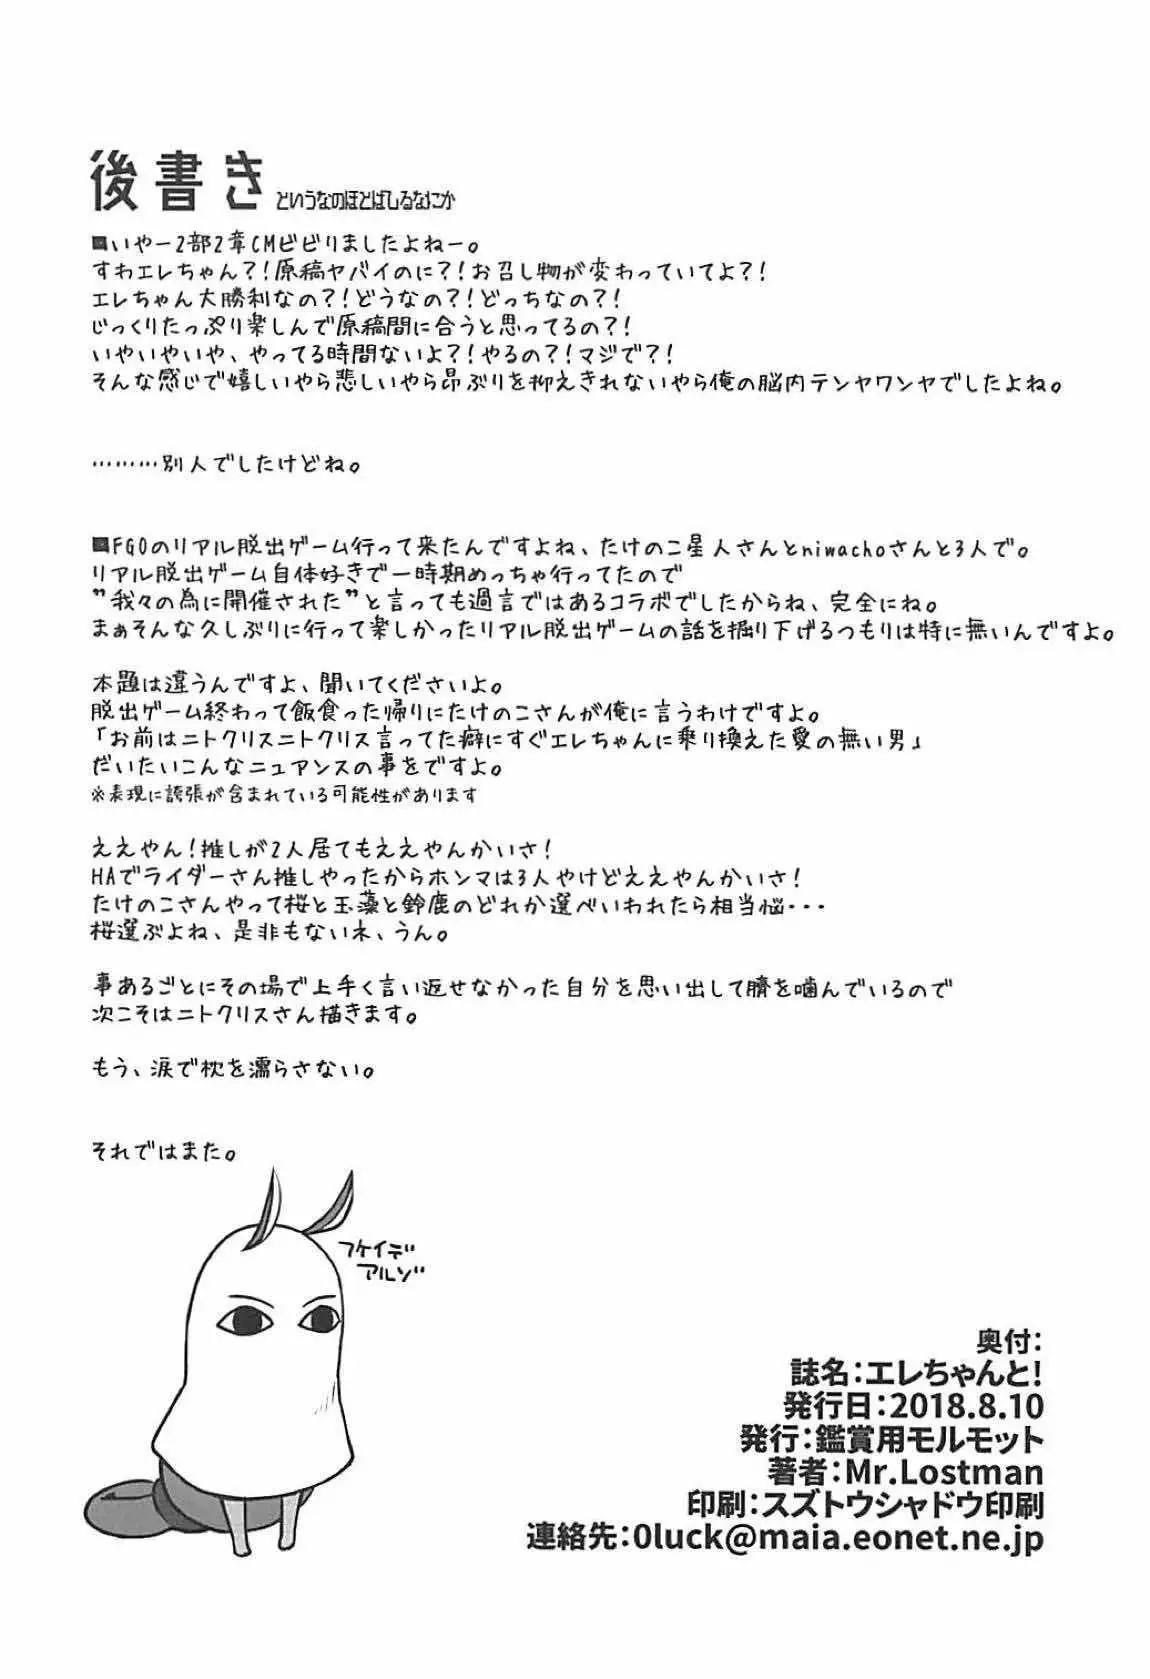 後書き というなのほとばしるなにか
■いやー2部2章CMビビりましたよねー。
すわエレちゃん?!原稿ヤバイのに?!お召し物が変わっていてよ?!
エレちゃん大勝利なの?!どうなの?!どっちなの?!
じっくりたっぷり楽しんで原稿間に合うと思ってるの?!
いやいやいや、やってる時間ないよ?!やるの?!マジで?!
そんな感じで嬉しいやら悲しいやら昂ぶりを抑えきれないやら俺の脳内テンヤワンヤでしたよね。
………別人でしたけどね。
■FGOのリアル脱出ゲーム行って来たんですよね、たけのこ星人さんとniwachoさんと3人で。
リアル脱出ゲーム自体好きで一時期めっちゃ行ってたので
”我々の為に開催された”と言っても過言ではあるコラボでしたからね、完全にね。
まぁそんな久しぶりに行って楽しかったリアル脱出ゲームの話を掘り下げるつもりは特に無いんですよ。
本題は違うんですよ、聞いてくださいよ。
脱出ゲーム終わって飯食った帰りにたけのこさんが俺に言うわけですよ。
「お前はニトクリスニトクリス言ってた癖にすぐエレちゃんに乗り換えた愛の無い男」
だいたいこんなニュアンスの事をですよ。
※表現に誇張が含まれている可能性があります
ええやん!推しが2人居てもええやんかいさ!
HAでライダーさん推しやったからホンマは3人やけどええやんかいさ!
たけのこさんやって桜と玉藻と鈴鹿のどれか選べいわれたら相当悩・・・
桜選ぶよね、是非もないネ、うん。
事あるごとにその場で上手く言い返せなかった自分を思い出して臍を噛んでいるので
次こそはニトクリスさん描きます。
もう、涙で枕を濡らさない。
それではまた。
フケイデ
アルゾ
奥付:
誌名:エレちゃんと!
発行日:2018.8.10
発行:鑑賞用モルモット
著者:Mr.Lostman
印刷:スズトウシャドウ印刷
連絡先:0luck@maia.eonet.ne.jp